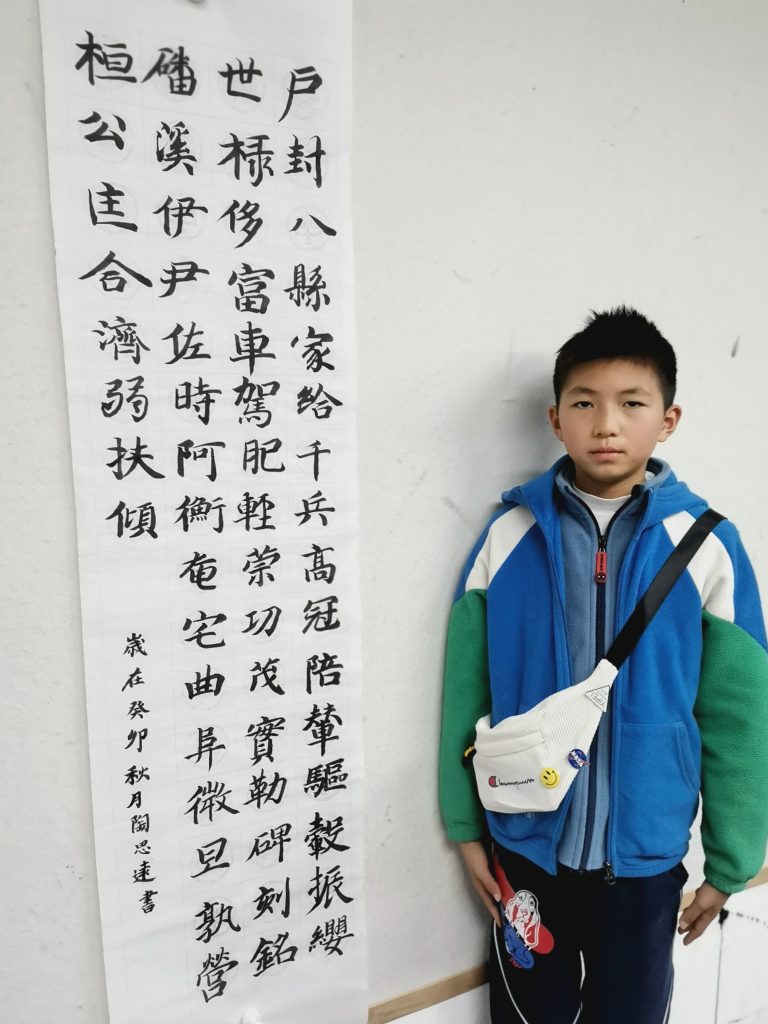 戶封八縣家給千兵高冠陪輦驅轂振纓
世祿侈富車駕肥輕榮功茂實勒碑刻銘
磻溪伊尹佐時阿衡奄宅曲阜微旦孰營
桓公匡合濟弱扶傾
歲在癸卯秋月陶思遠書
Champion
NASA